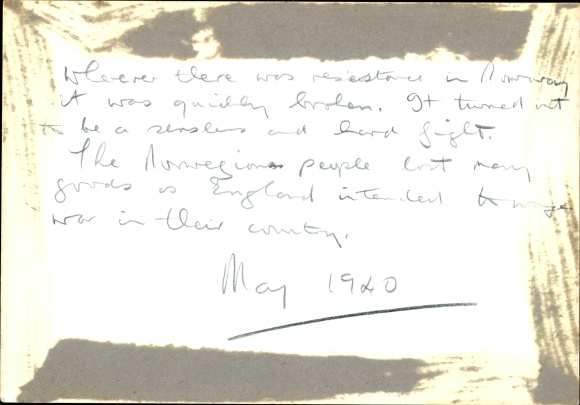 Wherever there was resistance in Norway
it was quickly broken. It turned out
to be a sensless and hard fight.
The Norwegian people lost many
goods as England intended to wage
war in their country.
May 1940